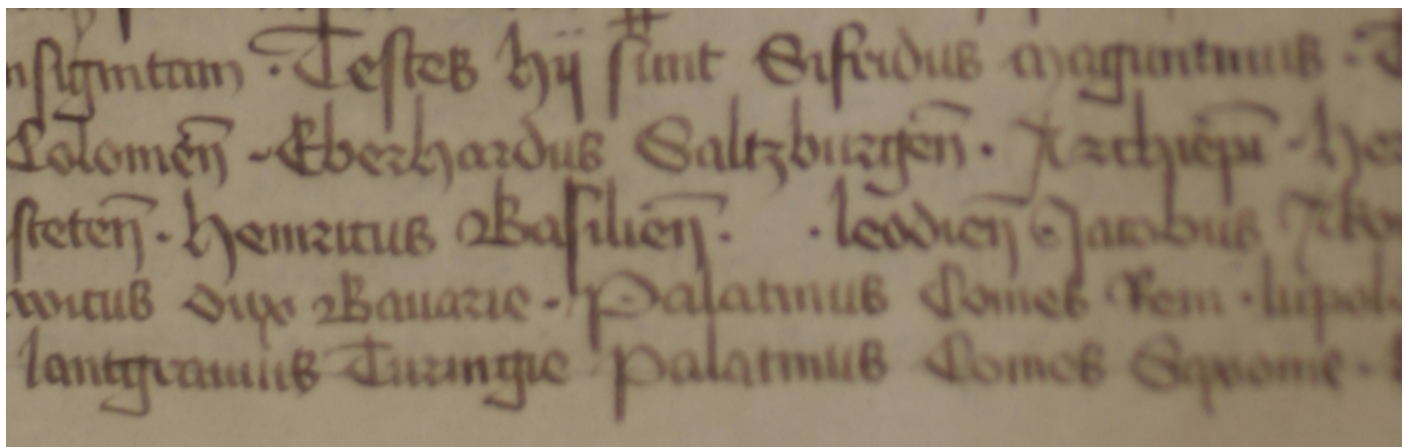 nsignitam · Testes hij sunt Sifridus Maguntinus ·
Colonień · Eberhardus Saltzburgeń · Archiepi · her
steteń · henricus Basilień · · leodień Jacobus
wicus dux Bauarie · Palatinus Comes Reni · lupol
lantgrauius Turingie Palatinus Comes Saxonie ·